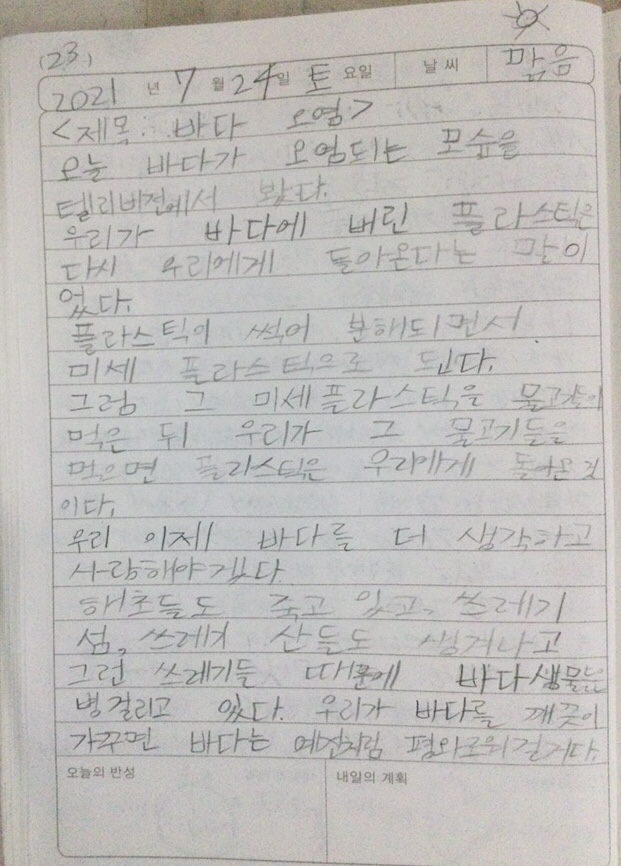 (23.)
2021 년 7 월 24일 토 요일 날씨 맑음
<제목: 바다 오염>
오늘 바다가 오염되는 모습을
텔리비전에서 봤다.
우리가 바다에 버린 플라스틱은
다시 우리에게 돌아온다는 말이
었다.
플라스틱이 썩어 분해되면서
미세 플라스틱으로 된다.
그럼 그 미세플라스틱을 물고기이
먹은 뒤 우리가 그 물고기들을
먹으면 플라스틱은 우리에게 돌아온 것
이다.
우리 이제 바다를 더 생각하고
사랑해야겠다.
해초들도 죽고 있고, 쓰레기
섬, 쓰레기 산들도 생겨나고
그런 쓰레기들 때문에 바다생물들은
병걸리고 있다. 우리가 바다를 깨끗이
가꾸면 바다는 예전처럼 평화로워질거다.
오늘의 반성 내일의 계획